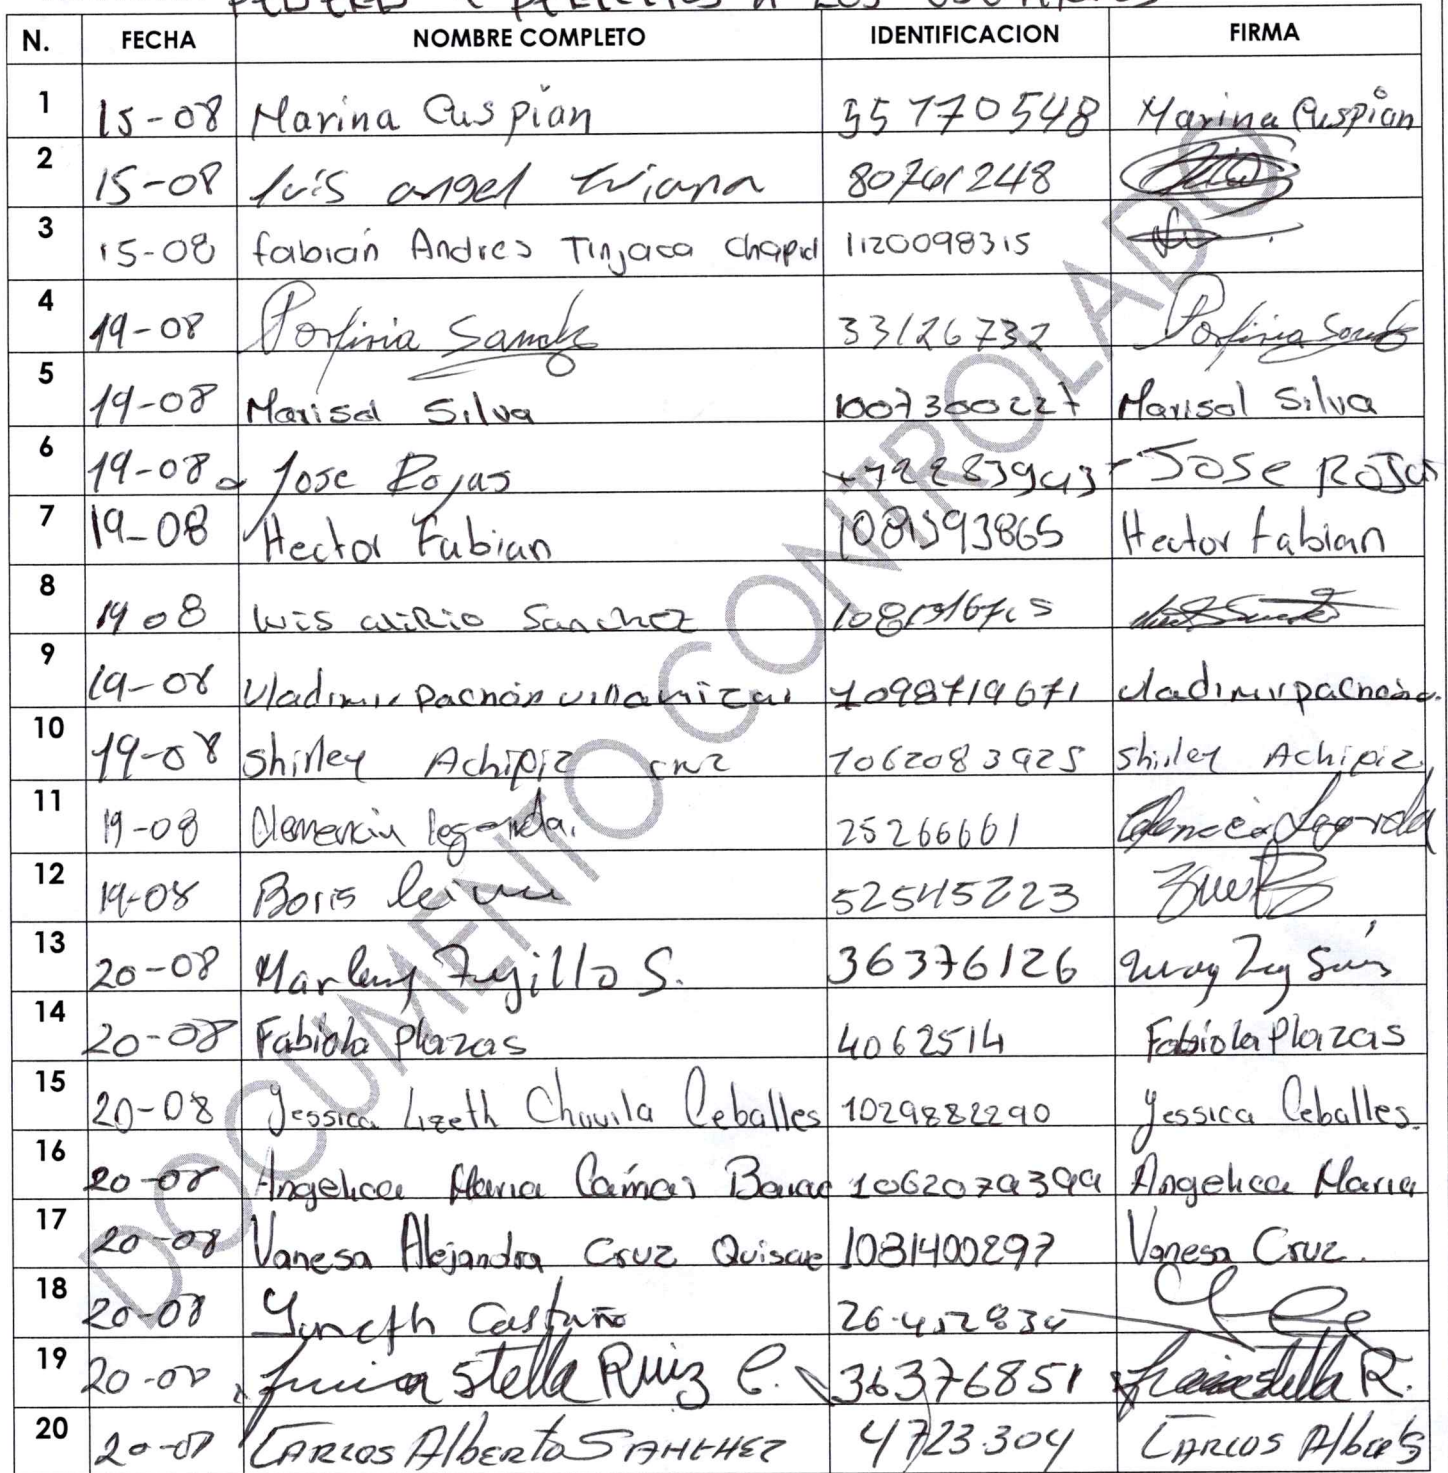 A LOS
N. FECHA NOMBRE COMPLETO IDENTIFICACION FIRMA
1 15-08 Marina Cuspian 55770548 Marina Cuspian
2 15-08 luis angel triana 80761248
3 15-08 fabian Andres Tinjaca Chapid 1120098315
4 19-08 Porfiria 33126732 Porfiria
5 19-08 Marisol Silva 1007300227 Marisol Silva
6 19-08 Jose Rojas Jose ROJas
7 19-08 Hector Fabian 1081393865 Hector fabian
8 19 08 luis aliRio Sanchez
9 19-08 vladimir pachon villamizar 1098719671 vladimir pachon
10 19-08 Shirley Achipiz cruz 1062083925 Shirley Achipiz
11 19-08 Clemencia 25266661
12 19-08 Boris 52545223
13 20-08 Marleny Trujillo S. 36376126
14 20-08 Fabiola Plazas 4062514 Fabiola Plazas
15 20-08 Jessica Lizeth Chavila Ceballes 1029882290 Jessica Ceballes.
16 20-08 Angelica Maria 1062079399 Angelica Maria
17 20-08 Vanesa Alejandra Cruz Quiscue 1081400297 Vanesa Cruz.
18 20-08 Yaneth Castaño 26.452834
19 20-08 stella Ruiz C. 36376851 stella R.
20 20-08 CARLOS AlbERTO SANCHEZ 4723304 CARLOS Alberto
DOCUMENTO CONTROLADO